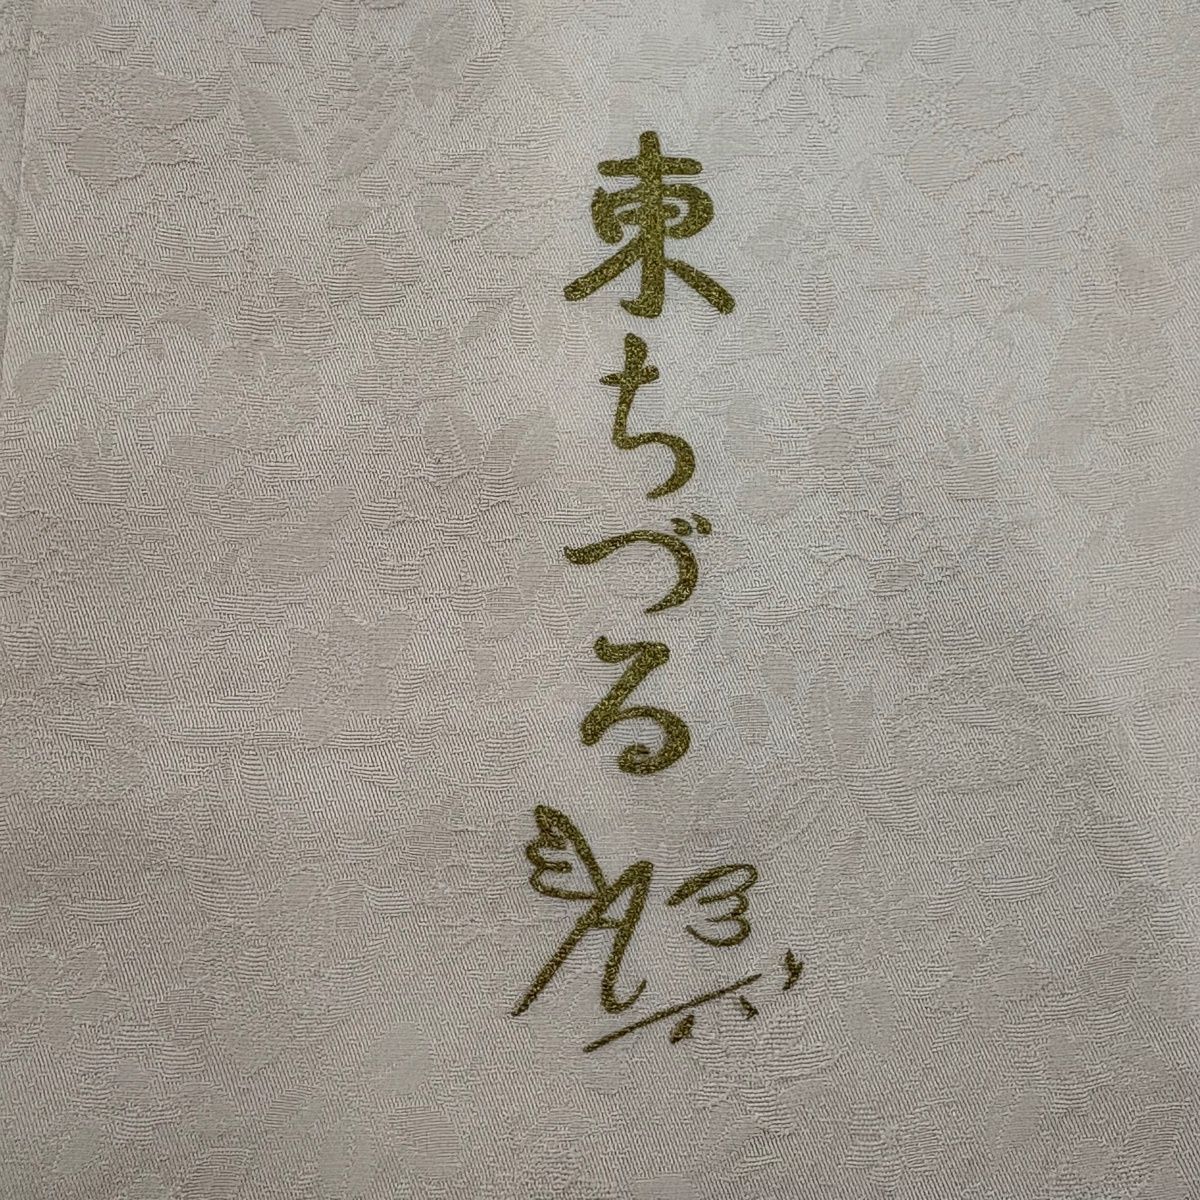 東ちづる
A